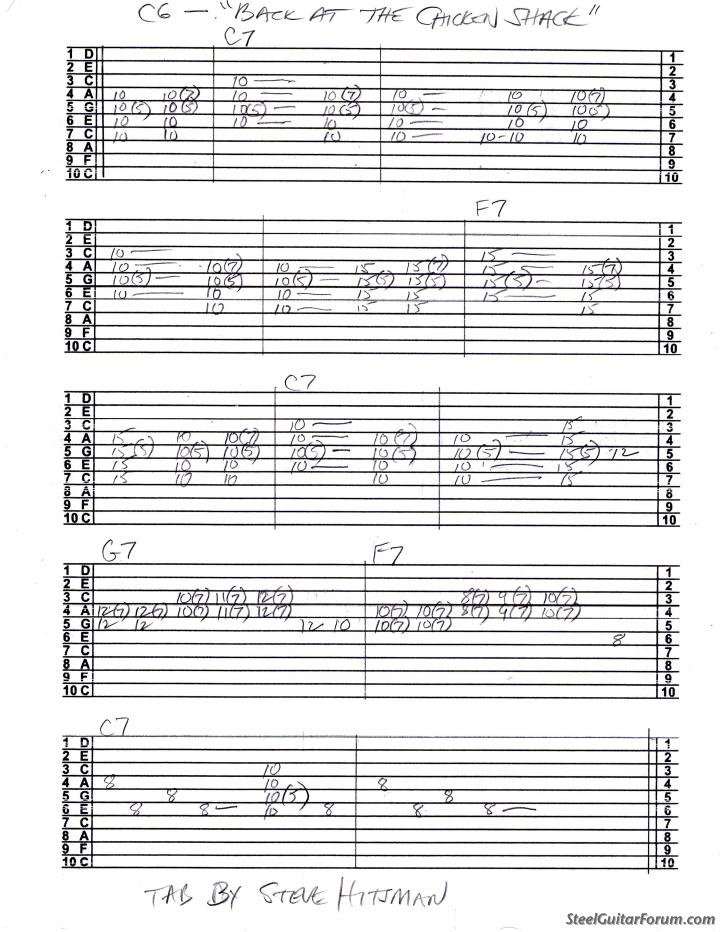 C6 — "BACK AT THE CHICKEN SHACK"
C7
1 D 1
2 E 2
3 C 10 — 3
4 A 10 10(7) 10 — 10(7) 10 — 10 10(7) 4
5 G 10(5) 10(5) 10(5) — 10(5) 10(5) — 10(5) 10(5) 5
6 E 10 10 10 — 10 10 — 10 10 6
7 C 10 10 10 10 — 10-10 10 7
8 A 8
9 F 9
10 C 10
F7
1 D 1
2 E 2
3 C 10 — 15 — 3
4 A 10 — 10(7) 10 — 15 15(7) 15 — 15(7) 4
5 G 10(5) — 10(5) 10(5) — 15(5) 15(5) 15(5) — 15(5) 5
6 E 10 — 10 10 — 15 15 15 — 15 6
7 C 10 10 — 15 15 15 7
8 A 8
9 F 9
10 C 10
C7
1 D 1
2 E 2
3 C 10 — 15 3
4 A 15 10 10(7) 10 — 10(7) 10 — 15 4
5 G 15(5) 10(5) 10(5) 10(5) — 10(5) 10(5) — 15(5) 12 5
6 E 15 10 10 10 — 10 10 — 15 6
7 C 15 10 10 10 10 — 15 7
8 A 8
9 F 9
10 C 10
G7 F7
1 D 1
2 E 2
3 C 10(7) 11(7) 12(7) 8(7) 9(7) 10(7) 3
4 A 12(7) 12(7) 10(7) 11(7) 12(7) 10(7) 10(7) 8(7) 9(7) 10(7) 4
5 G 12 12 12 10 10(7) 10(7) 5
6 E 8 6
7 C 7
8 A 8
9 F 9
10 C 10
C7
1 D 1
2 E 2
3 C 10 3
4 A 8 10 8 4
5 G 8 10(5) 8 5
6 E 8 8 — 10 8 8 8 — 6
7 C 7
8 A 8
9 F 9
10 C 10
TAB BY STEVE HITSMAN
SteelGuitarForum.com